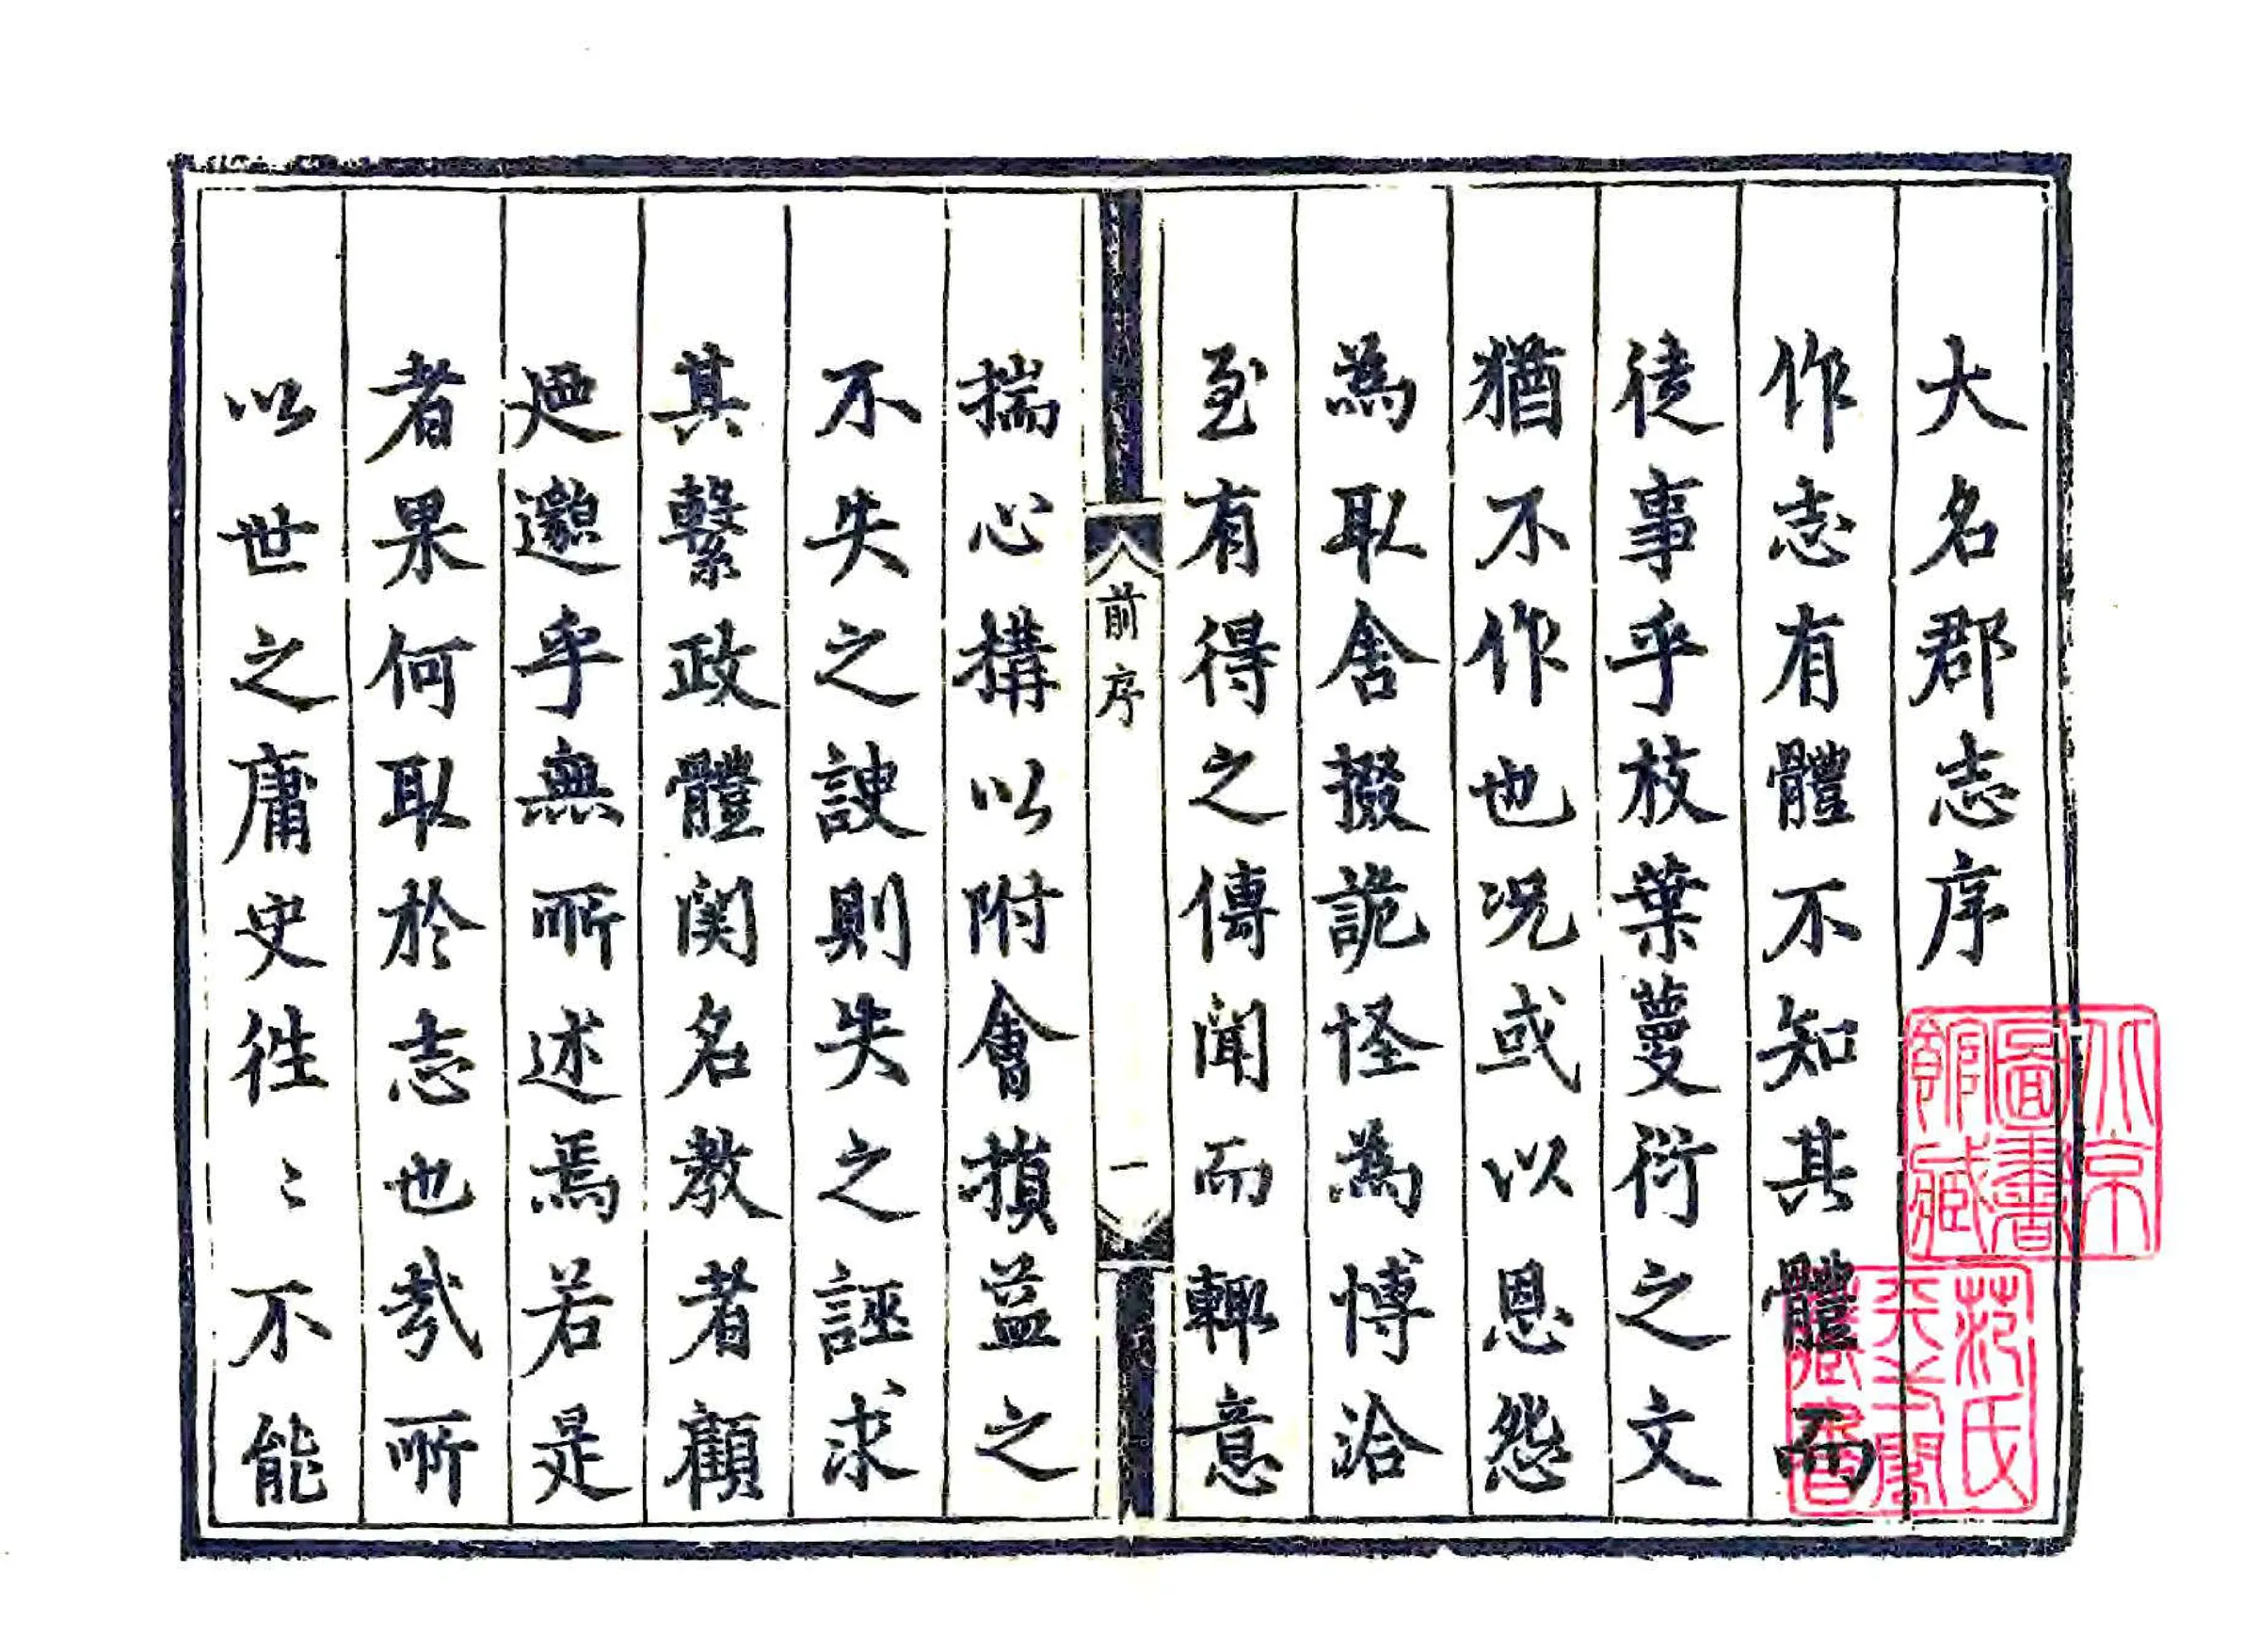 大名郡志序
作志有體不知其體而
徒事乎枝葉蔓衍之文
猶不作也况或以恩怨
為取舍掇詭怪為博洽
至有得之傳聞而輙意
前序
一
揣心構以附會損益之
不失之諛則失之誣求
其繫政體関名教者顧
廼邈乎無所述焉若是
者果何取於志也㢤所
以世之庸史徃〻不能
北京
圖書
館藏
范氏
天一閣
藏書